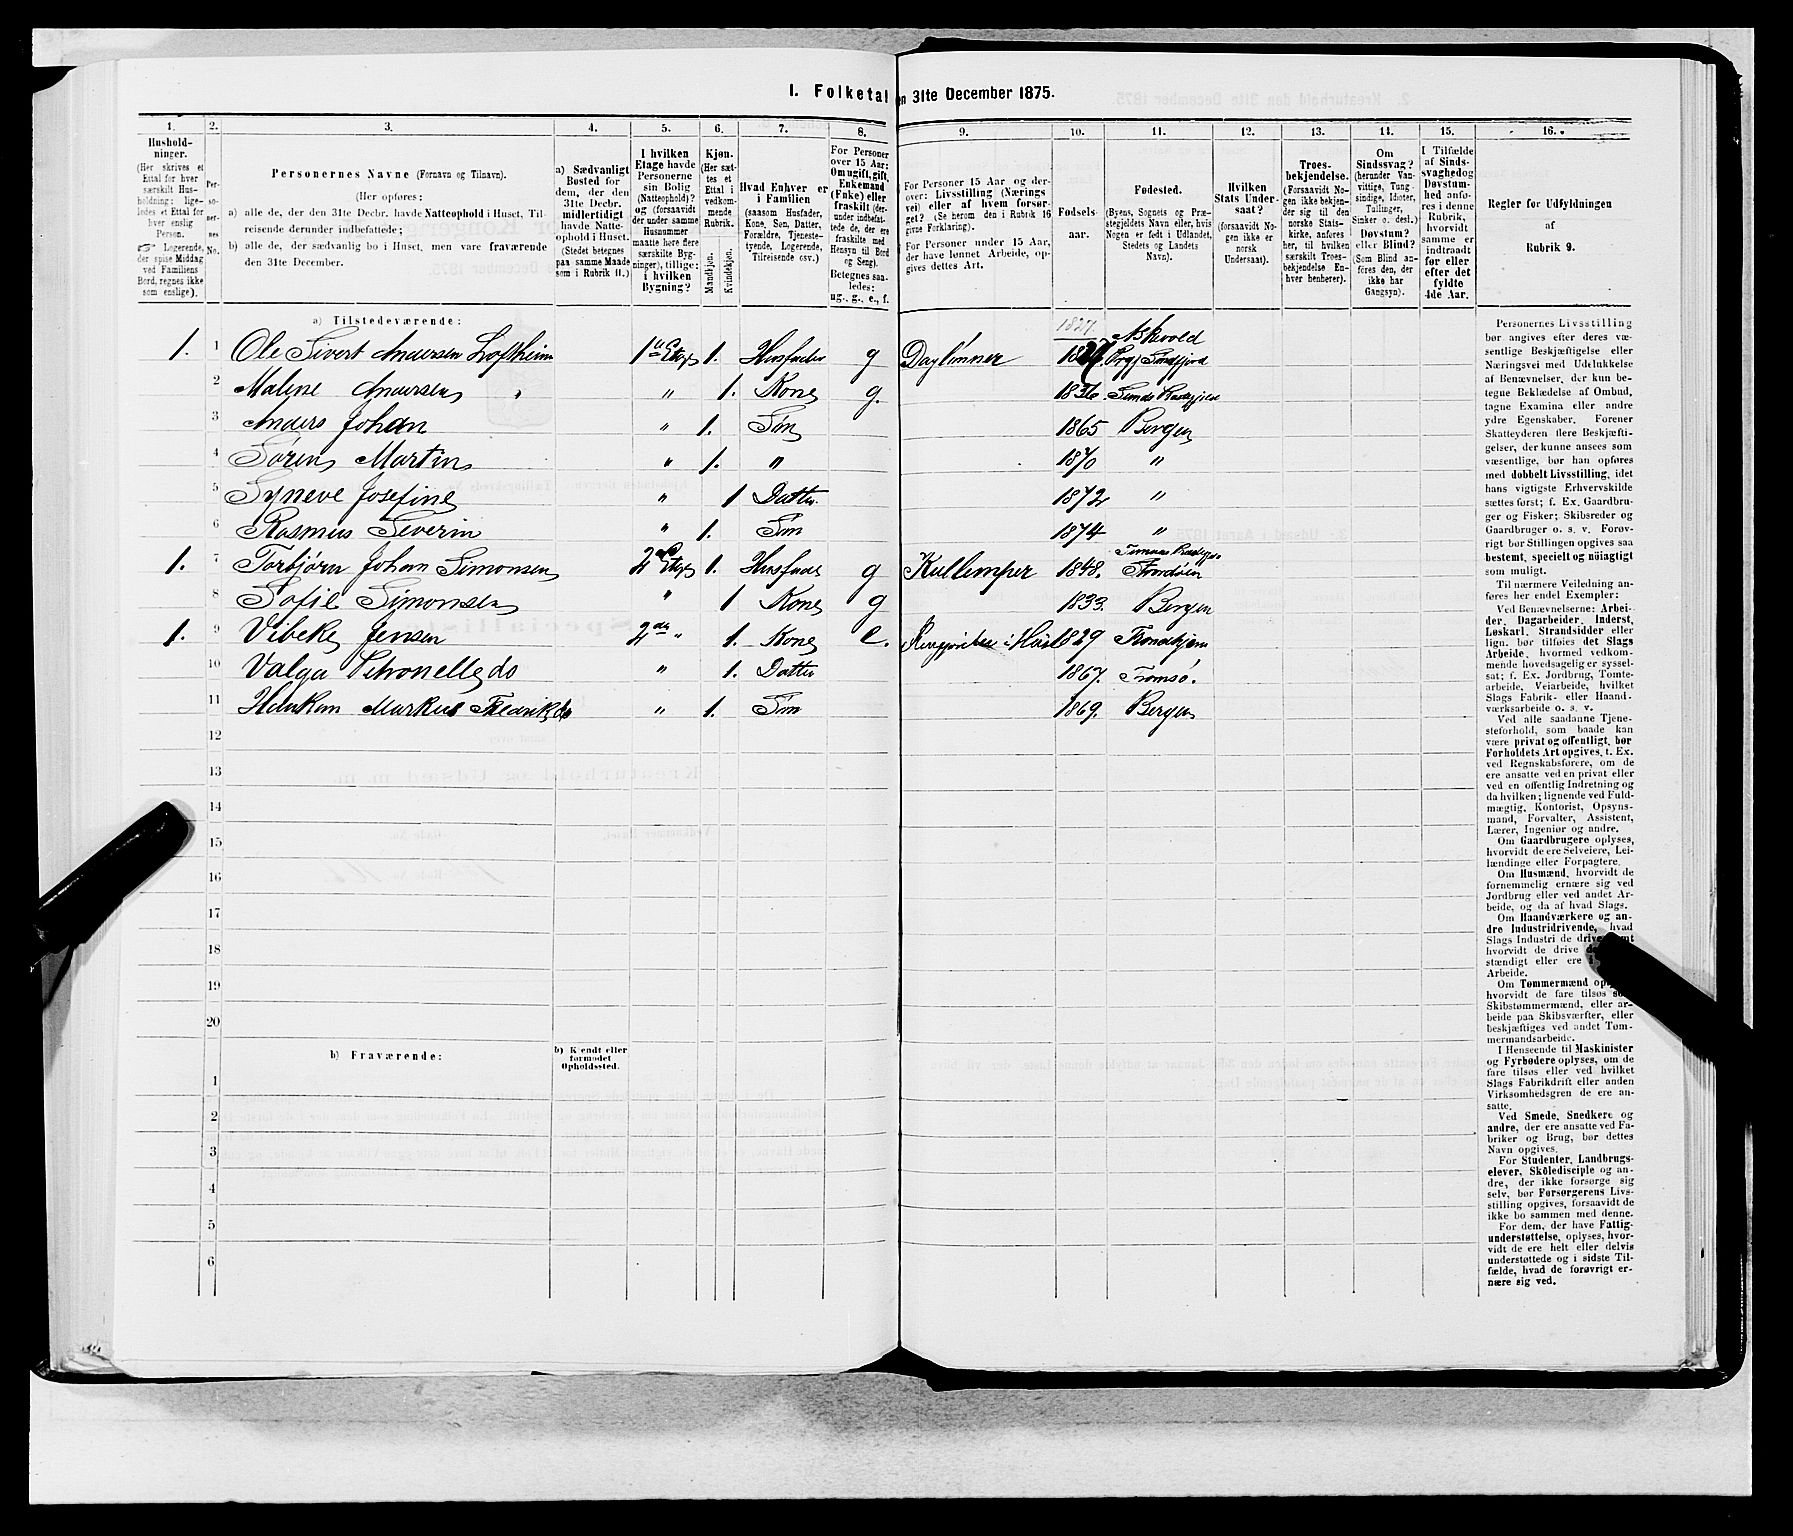 I. Folketal en 31te December 1875.
1. 2. 3. 4. 5. 6. 7. 8. 9. 10. 11. 12. 13. 14. 15. 16.
Hushold-
ninger.
(Her skrives et
Ettal for hver
særskilt Hus-
holdning; lige-
ledes et Ettal for
hver enslig
Person.
Logerende,
der spise Middag
ved Familiens
Bord, regnes ikke
som enslige).
Per-
so-
ner-
nes
No.
Personernes Navne (Fornavn og Tilnavn).
(Her opføres:
a) alle de, der den 31te Decbr. havde Natteophold i Huset, Til-
reisende derunder indbefattede;
b) alle de, der sædvanlig bo i Huset, men vare fraværende
den 31te December.
a) Sædvanligt
Bosted for
dem, der den
31te Decbr.
midlertidigt
havde Natte-
ophold i Huset.
(Stedet betegnes
paa samme Maade
som i Rubrik 11.)
I hvilken
Etage havde
Personerne
sin Bolig
(Natteophold)?
og (forsaavidt
der under samme
Husnummer
maatte høre flere
særskilte Byg-
ninger), tillige:
i hvilken
Bygning?
Kjøn.
(Her sæt-
tes et
Ettal i
vedkom-
mende
Rubrik.
Mandkjøn.
Kvindekjøn.
Hvad Enhver er
i Familien
(saasom Husfader,
Kone, Søn, Datter,
Forældre, Tjeneste-
tyende, Logerende,
Tilreisende osv.)
For Personer
over 15 Aar:
Om ugift, gift,
Enkemand
(Enke) eller
fraskilt (der-
under indbefat-
tede de, der ere
fraskilte med
Hensyn til Bord
og Seng).
Betegnes saa-
ledes:
ug., g., e., f.
For Personer 15 Aar og der-
over: Livsstilling (Nærings
vei) eller af hvem forsør-
get? (Se herom den i Rubrik 16
givne Forklaring).
For Personer under 15 Aar,
der have lønnet Arbeide, op-
gives dettes Art.
Fødsels-
aar.
Fødested.
(Byens, Sognets og Præ-
stegjeldets Navn eller, hvis
Nogen er født i Udlandet,
Stedets og Landets
Navn).
Hvilken
Stats Under-
saat?
(forsaavidt No-
gen ikke er
norsk
Undersaat).
Troes-
bekjendelse.
(Forsaavidt No-
gen ikke bekjen-
der sig til den
norske Stats-
kirke, anføres
her, til hvilken
særskilt Troes-
bekjendelse En-
hver henhører).
Om
Sindssvag?
(herunder Van-
vittige, Tung-
sindige, Idioter,
Tullinger,
Sinker o. desl.)
Døvstum?
eller Blind?
(Som Blind an-
føres den, der
ikke har
Gangsyn).
I Tilfælde
af Sinds-
svaghed og
Døvstum-
hed anfø-
res i denne
Rubrik,
hvorvidt
samme er
indtraadt
før eller
efter det
fyldte
4de Aar.
Regler for Udfyldningen
af
Rubrik 9.
a) Tilstedeværende:
1. 1 Ole Sivert Andersen Loftheim 1ste Etage 1. Husfader g Daglønner 1827. Askvold
2 Malene Andersen " " 1. Kone g. 1836.
3 Anders Johan " 1. Søn 1865 Bergen
4 Søren Martin " 1. " 1870 "
5 Syneve Josefine " 1 Datter 1872 "
6 Rasmus Severin " 1. Søn 1874 "
1. 7 Torbjørn Johan Simonsen 2 Etage 1. Husfader g Kullemper 1848.
8 Sofie Simonsen " 1 Kone g 1833. Bergen
1. 9 Vibeke Jensen 2den " 1. Kone e. 1829 Trondhjem
10 Valga Petronelle do " 1. Datter 1867. Tromsø.
11 Markus Fredrik do " 1. Søn 1869. Bergen
12
13
14
15
16
17
18
19
20
b) Fraværende:
b) Kjendt eller
formodet
Opholdssted.
1
2
3
4
5
6
Personernes Livsstilling
bør angives efter deres væ-
sentlige Beskjæftigelse eller
Næringsvei med Udelukkelse
af Benævnelser, der kun be-
tegne Beklædelse af Ombud,
tagne Examina eller andre
ydre Egenskaber. Forener
Skatteyderen flere Beskjæfti-
gelser, der kunne ansees som
væsentlige, bør han opføres
med dobbelt Livsstilling, idet
hans vigtigste Erhvervskilde
sættes først; f. Ex. Gaardbru-
ger og Fisker; Skibsreder og
Gaardbruger o. s. v. Forøv-
rigt bør Stillingen opgives saa
bestemt, specielt og nøiagtigt
som muligt.
Til nærmere Veiledning an-
føres her endel Exempler:
Ved Benævnelserne: Arbei-
der, Dagarbeider, Inderst,
Løskarl, Strandsidder eller
lign. bør tilføies det Slags
Arbeide, hvormed vedkom-
mende hovedsagelig er syssel-
sat; f. Ex. Jordbrug, Tomte-
arbeide, Veiarbeide, hvilket
Slags Fabrik- eller Haand-
værksarbeide o. s. v.
Ved alle saadanne Tjene-
steforhold, som baade kan
være privat og offentligt, bør
Forholdets Art opgives, t. Ex.
ved Regnskabsførere, om de
ere ansatte ved en privat eller
ved en offentlig Indretning og
da hvilken; lignende ved Fuld-
mægtig, Kontorist, Opsyns-
mand, Forvalter, Assistent,
Lærer, Ingeniør og andre.
Om Gaardbrugere oplyses,
hvorvidt de ere Selveiere, Lei-
lændinge eller Forpagtere.
Om Husmænd, hvorvidt de
fornemmelig ernære sig ved
Jordbrug eller ved andet Ar-
beide, og da af hvad Slags.
Om Haandværkere og an-
dre Industridrivende, hvad
Slags Industri de
hvorvidt de drive
stændigt eller ere i
Arbeide.
Om Tømmermænd
hvorvidt de fare tilsøs
Skibstømmermænd, eller ar-
beide paa Skibsværfter, eller
beskjæftiges ved andet Tøm-
mermandsarbeide.
I Henseende til Maskinister
og Fyrbødere oplyses, om de
fare tilsøs eller ved hvilket
Slags Fabrikdrift eller anden
Virksomhedsgren de ere an-
satte.
Ved Smede, Snedkere og
andre, der ere ansatte ved Fa-
briker og Brug, bør dettes
Navn opgives.
For Studenter, Landbrugs-
elever, Skoledisciple og an-
dre, der ikke forsørge sig
selv, bør Forsørgerens Livs-
stilling opgives, forsaavidt de
ikke bo sammen med denne.
For dem, der have Fattig-
understøttelse, oplyses, hvor-
vidt de ere helt eller delvis
understøttede og i sidste Til-
fælde, hvad de forøvrigt er-
nære sig ved.